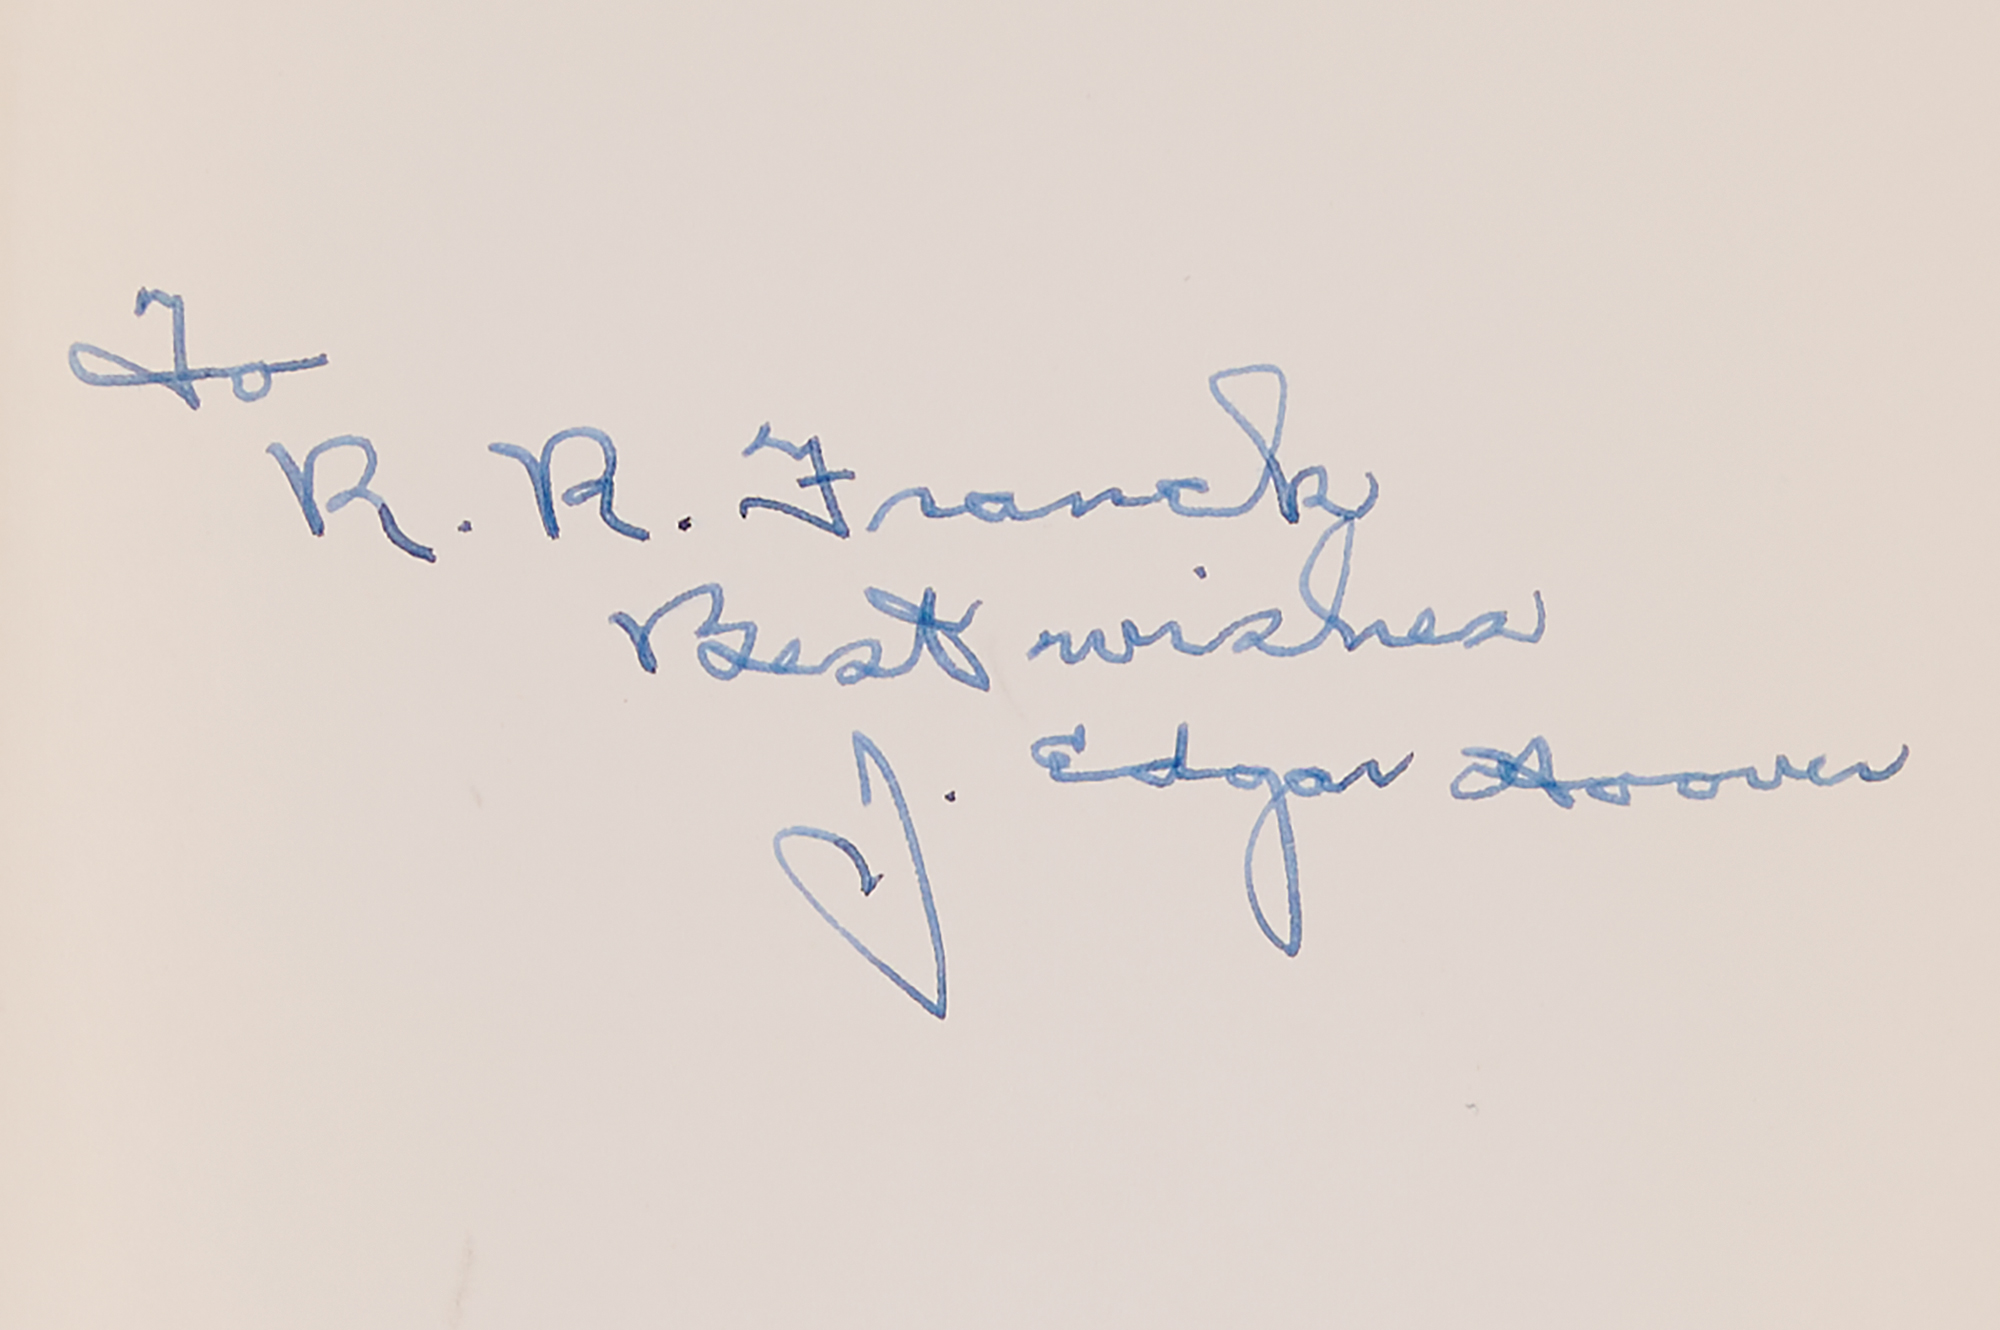 To
R. R. Franck
Best wishes
J. Edgar Hoover